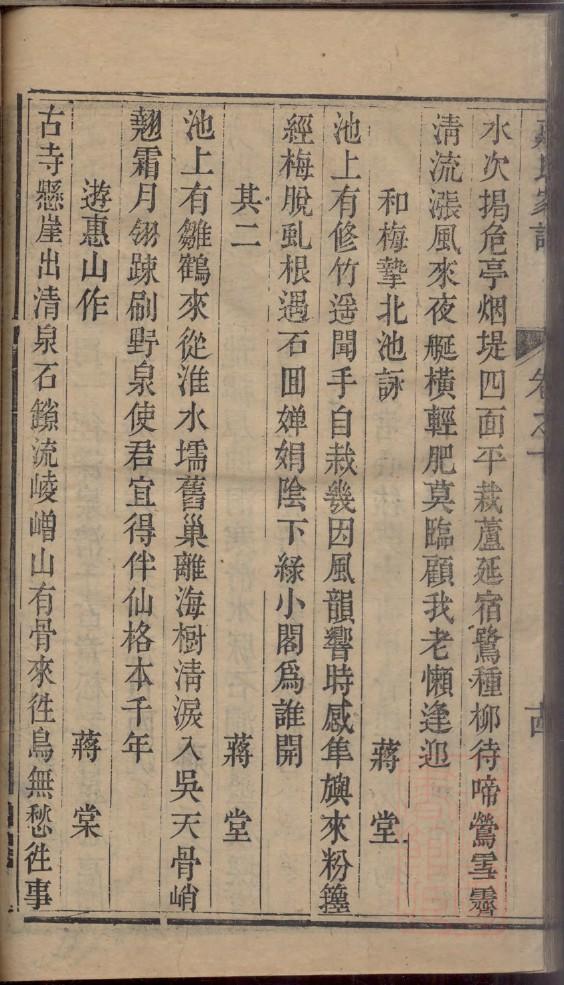 水次揭危亭烟堤四面平栽蘆延宿鷺種柳待啼鶯雪霽
清流漲風來夜艇橫輕肥莫臨顧我老懶逢迎
和梅摯北池詠 蔣堂
池上有修竹遥聞手自栽幾因風韻響時感隼旟來粉籜
經梅脫虬根遇石囬嬋娟陰下綠小閣爲誰開
其二 蔣堂
池上有雛鶴來從淮水壖舊巢離海樹清淚入吳天骨峭
翹霜月翎踈刷野泉使君宜得伴仙格本千年
遊惠山作 蔣棠
古寺懸崖出清泉石鎖流崚嶒山有骨來徃鳥無愁徃事